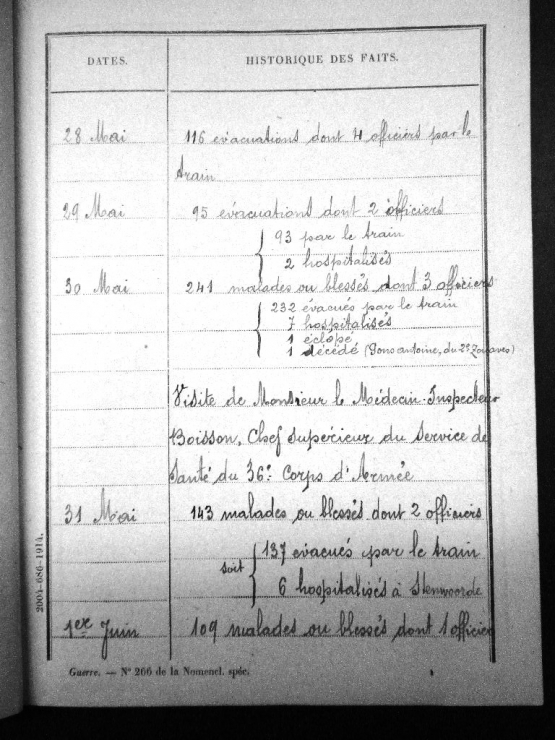 DATES. HISTORIQUE DES FAITS.
28 Mai 116 évacuations dont 4 officiers par le
train
29 Mai 95 évacuations dont 2 officiers
93 par le train
2 hospitalisés
30 Mai 241 malades ou blessés dont 3 officiers
232 évacués par le train
7 hospitalisés
1 éclopé
1 décédé (Gons antoine, du 2e Zouaves)
Visite de Monsieur le Médecin-Inspecteur
Boisson, Chef Supérieur du Service de
Santé du 36e Corps d'Armée
31 Mai 143 malades ou blessés dont 2 officiers
soit 137 évacués par le train
6 hospitalisés à Steenvoorde
1er Juin 109 malades ou blessés dont 1 officier
2004-686-1914.
Guerre. — N° 266 de la Nomencl. spéc.